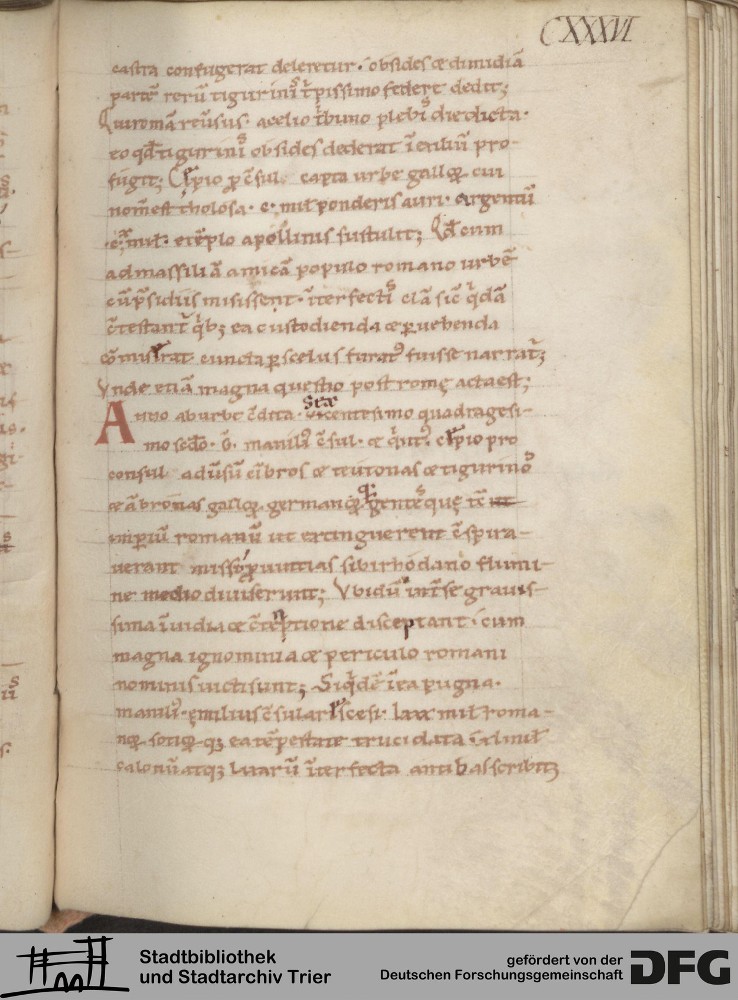 CXXXVI
castra confugerat deleretur. obsides & dimidiā
partē rerū tigurinis t̄pissimo federe dedit;
Qui romā reūsus. a celio t̄buno plebis die dicta.
eo qđ tigurinis obsides dederat ī exiliū pro-
fugit; Cȩpio p̄c̄sul. capta urbe gallo℞ cui
nom̄ est tholosa. c. mił ponderis auri. argentū
c. mił. e tēplo apollinis sustulit; Qđ cum
ad massiliā amicā populo romano urbē
cū p̄sidiis misissent. īterfectis clā sic̄ q̇dā
c̄testant̄ q̇b; ea custodienda & ꝑuehenda
cōmiserat. cuncta ꝑ scelus furatꝰ fuisse narrat̄;
Vnde etiā magna questio post romȩ acta est;
sex
Anno ab urbe c̄dita. centesimo quadragesi-
mo scđo. G. manilīꝰ c̄sul. & q̇ntꝰ. cȩpio pro
consul adūsū cībros & teutonas & tigurinos
& ābronas gallo℞. germano℞ gentes quȩ tc̄
imꝑiū romanū ut extinguerent c̄spira-
uerant missi ꝓuintias sibi rhodano flumi-
ne medio diuiserunt; Vbi dū int̄ se grauis-
sima īuidia & c̄tentione disceptant. cum
magna ignominia & periculo romani
nominis uicti sunt; Siq̇dē ī ea pugna.
manilīꝰ. ȩmilius c̄sularis cesꝰ. lxxx mił roma-
no℞ socio℞q; ea tēpestate trucidata īxł mił
calonū atq; lixarū īterfecta antias scribit;
Stadtbibliothek
und Stadtarchiv Trier
gefördert von der
Deutschen Forschungsgemeinschaft
DFG